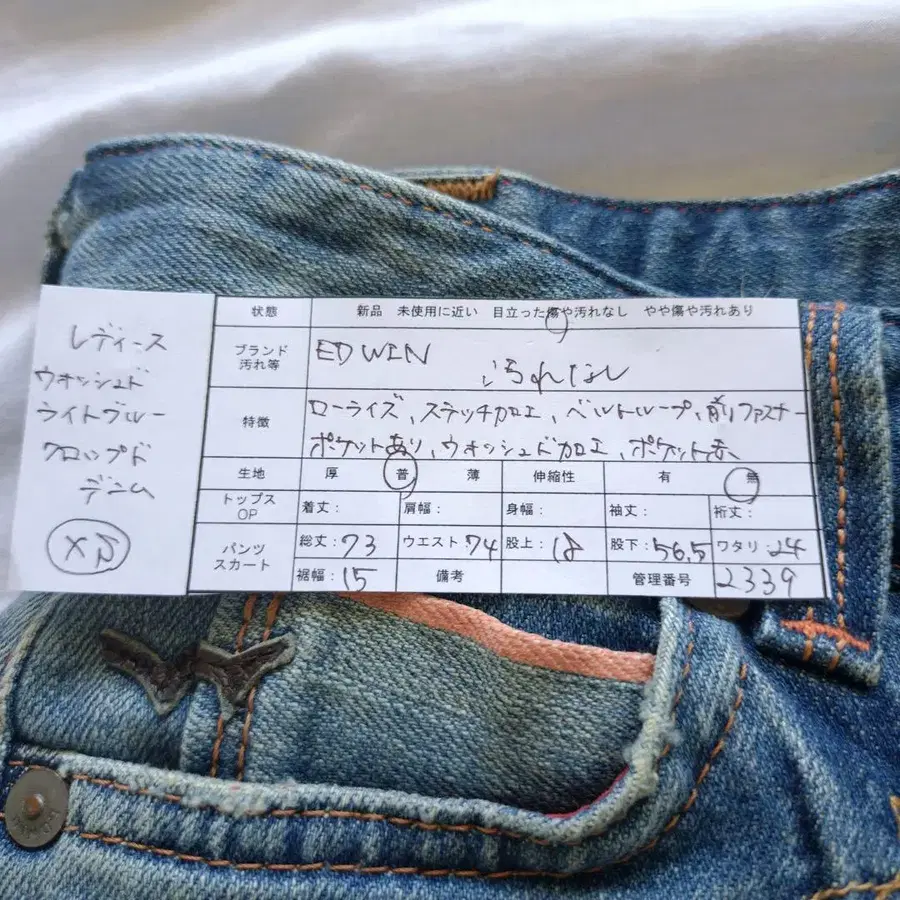 レディース
ウォッシュド
ライトブルー
クロップド
デニム
XS
状態 新品 未使用に近い 目立った傷や汚れなし やや傷や汚れあり
ブランド
汚れ等
EDWIN
汚れなし
特徴
ローライズ、ステッチ加工、ベルトループ、前ファスナー
ポケットあり、ウォッシュド加工、ポケット赤
生地 厚 普 薄 伸縮性 有 無
トップス
OP
着丈: 肩幅: 身幅: 袖丈: 裄丈:
パンツ
スカート
総丈:73 ウエスト:74 股上:18 股下:56.5 ワタリ:24
裾幅:15 備考 管理番号 2339